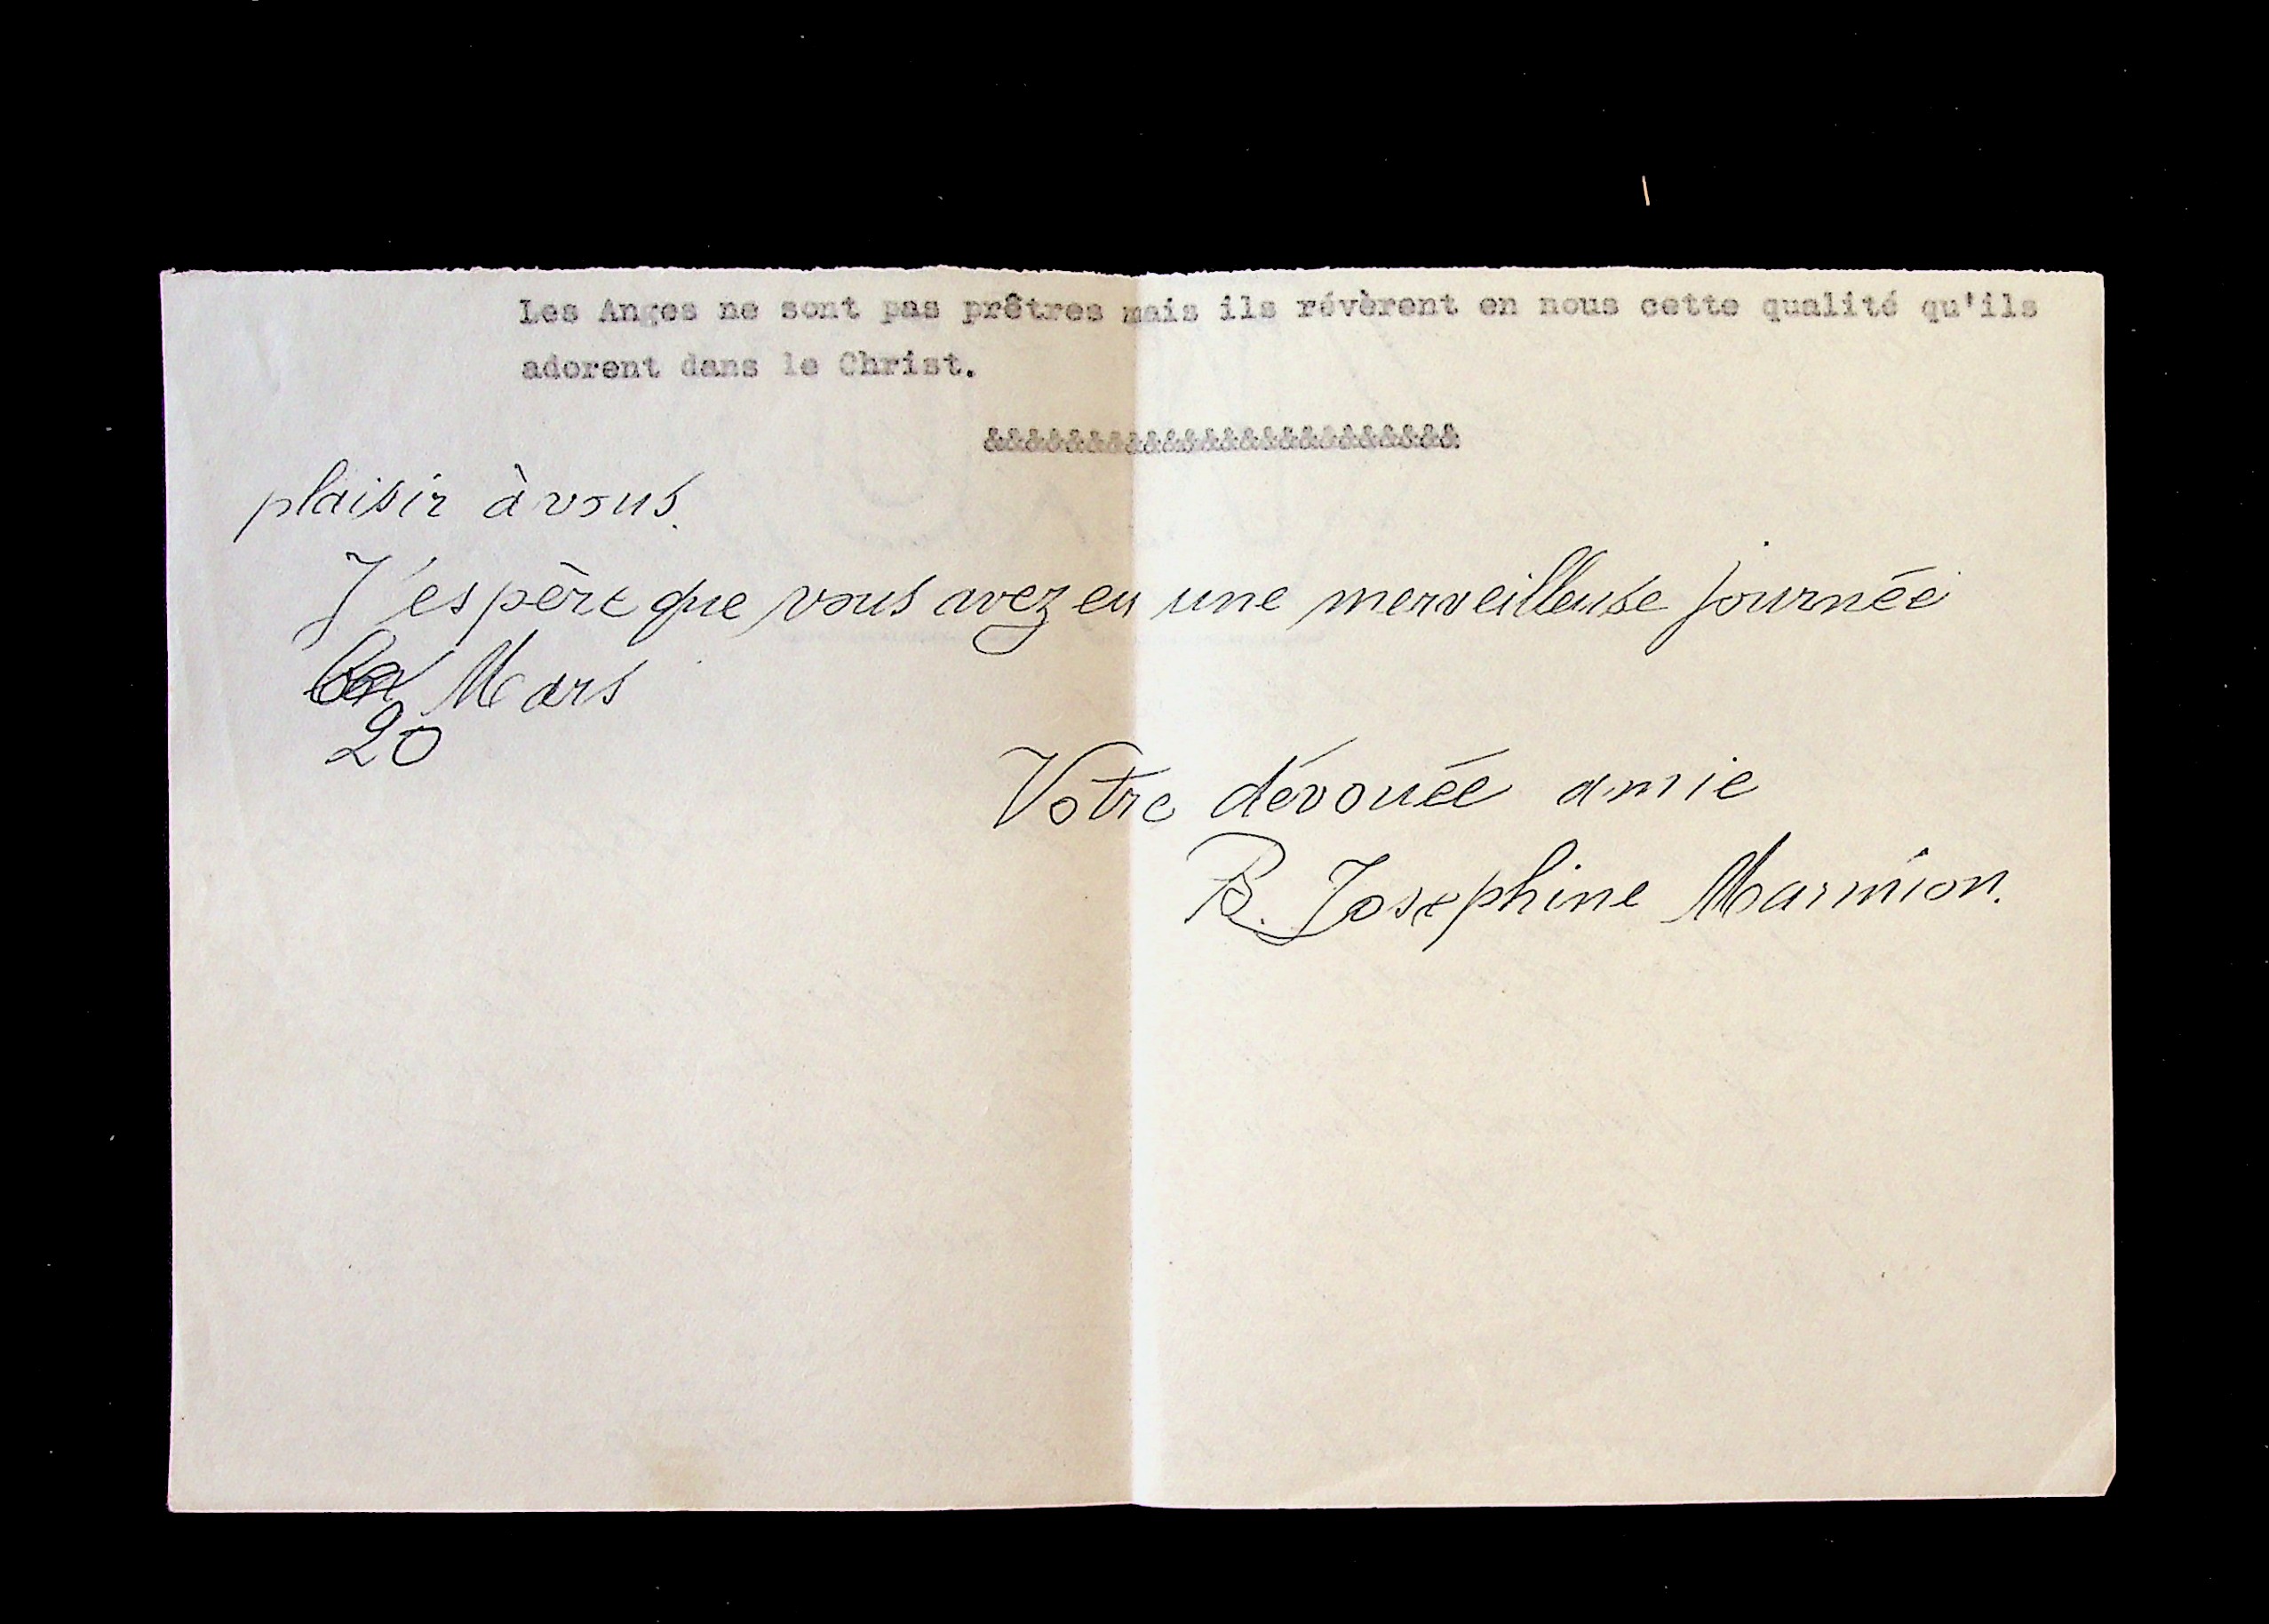 Les Anges ne sont pas prêtres mais ils révèrent en nous cette qualité qu'ils
adorent dans le Christ.
&&&&&&&&&&&&&&&&&&&&&&&
plaisir à vous.
J'espère que vous avez eu une merveilleuse journée
Mars
20
Votre dévouée amie
B. Josephine Marmion.